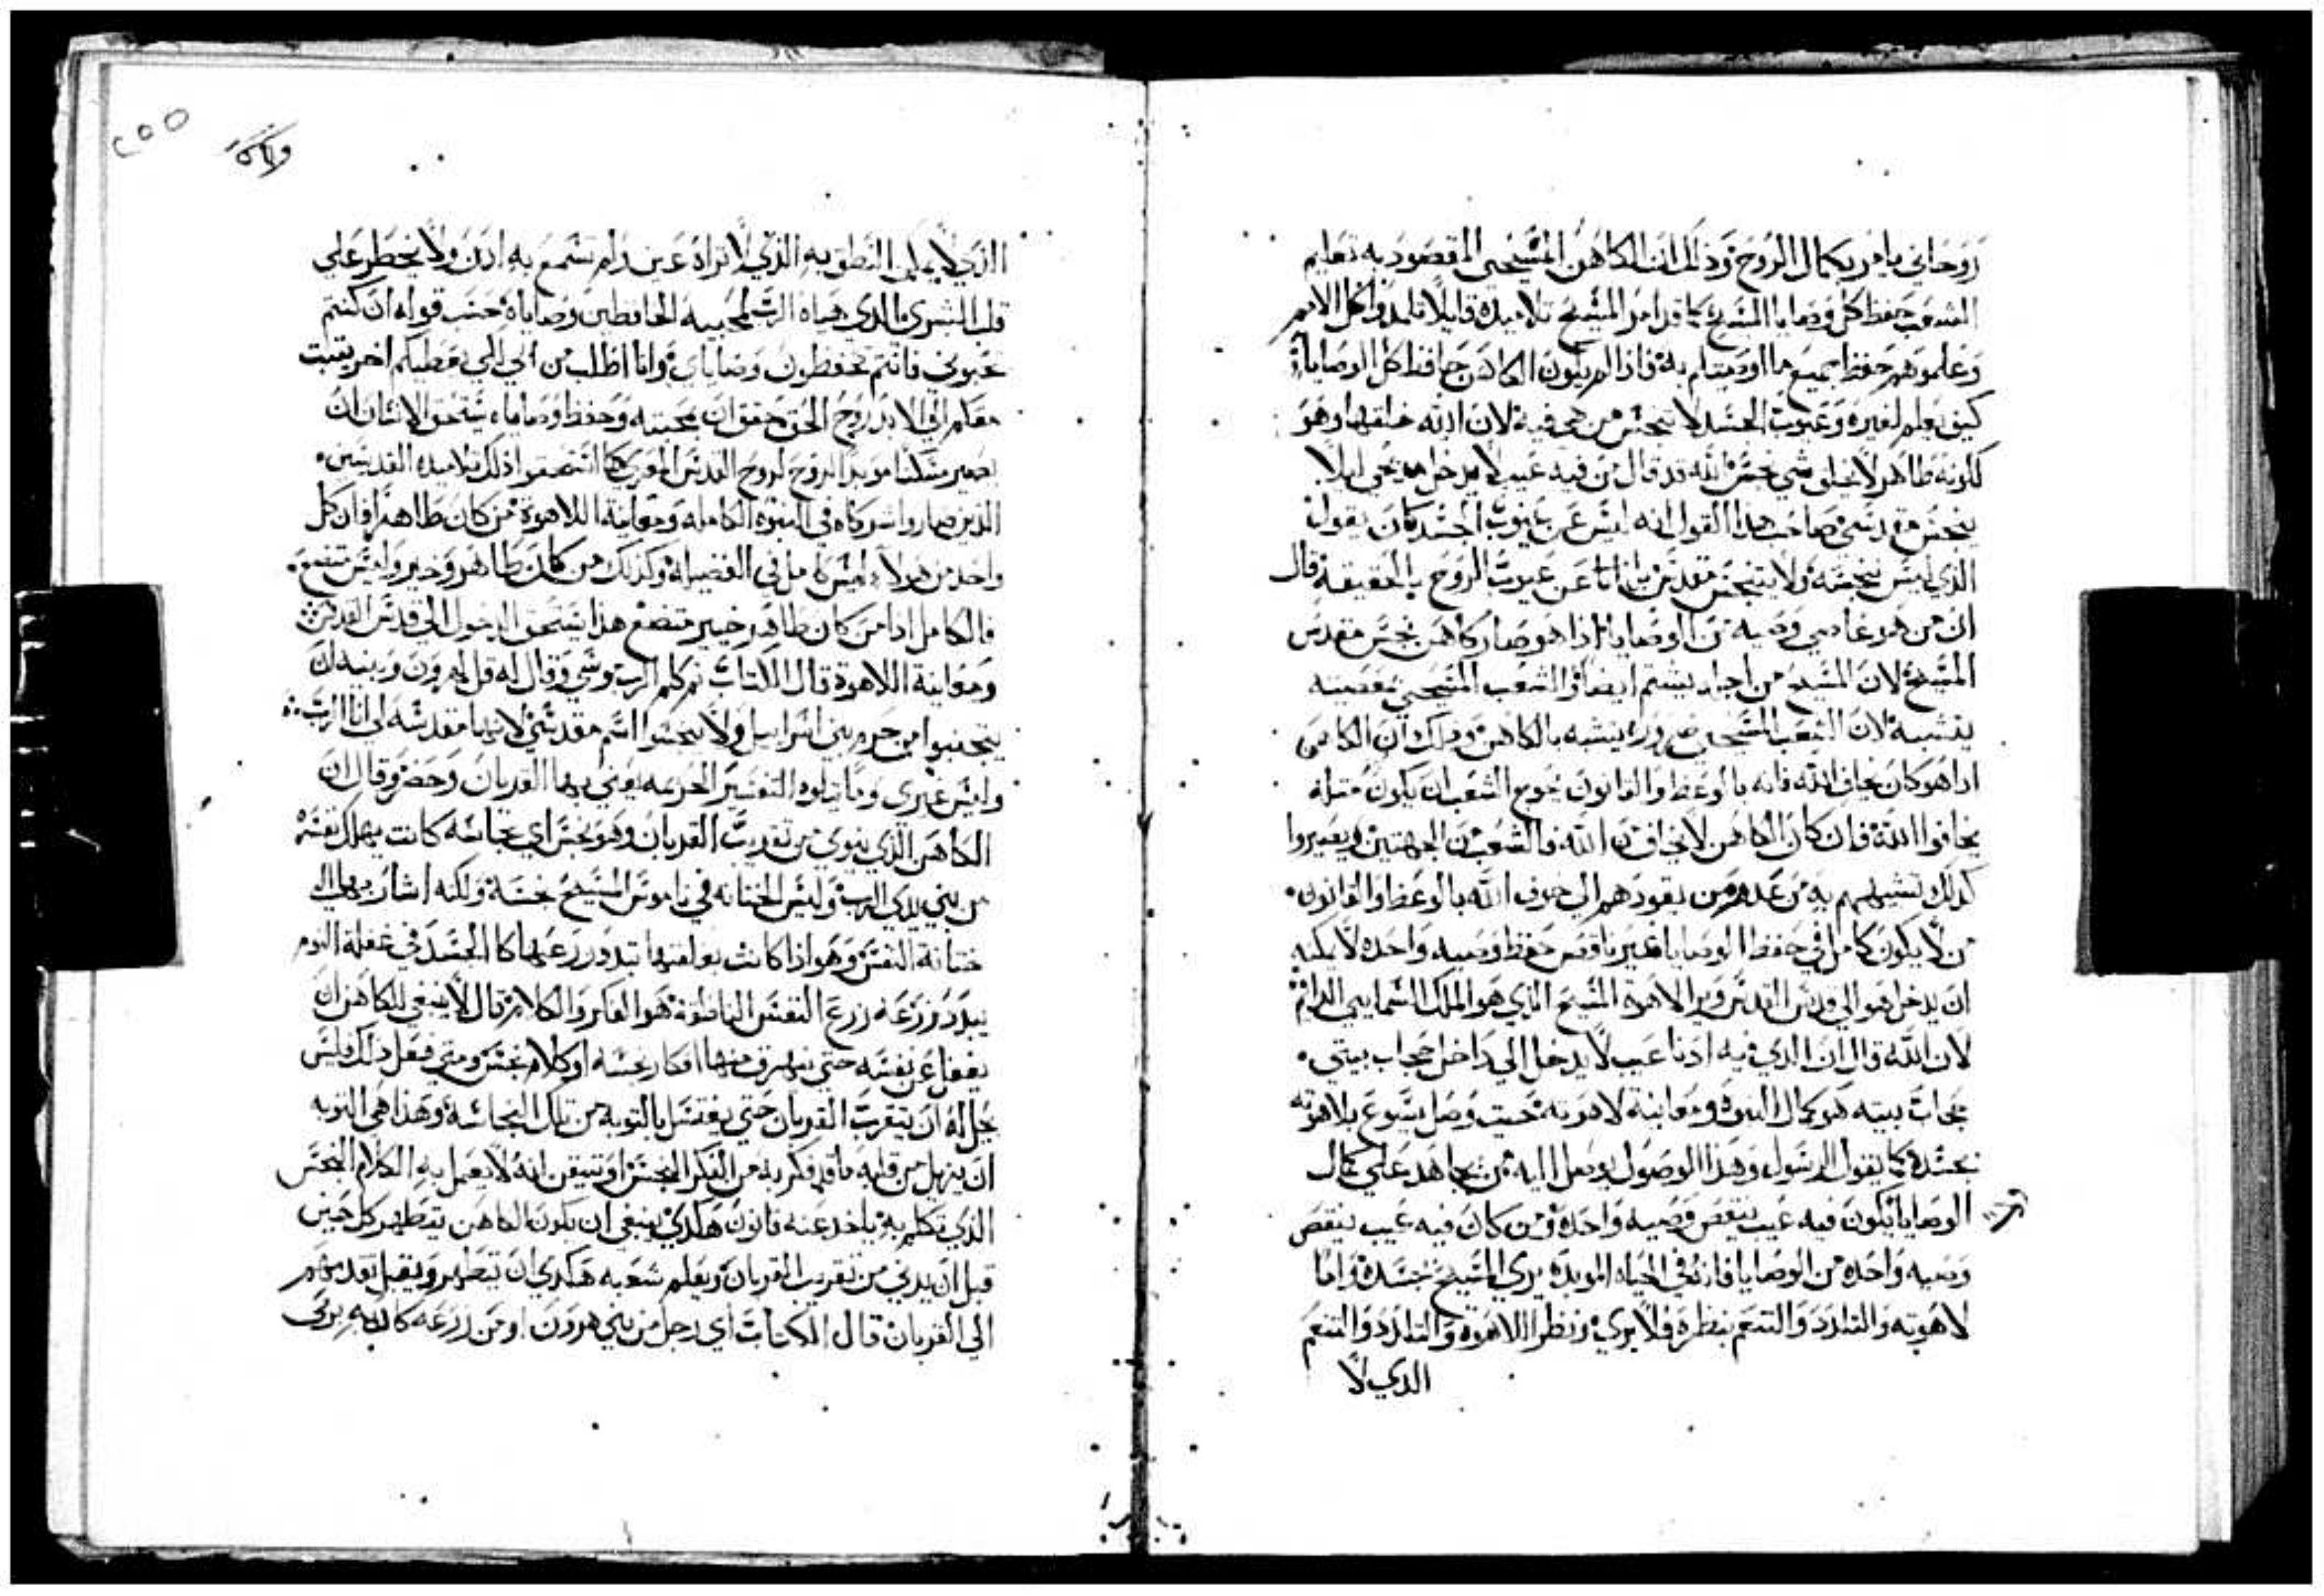 روحاني يامر بكمال الروح وذلك ان الكاهن المسيحي المقصود به تعليم
الشعب حفظ كل وصايا المسيح كما قد امر المسيح تلاميذه قايلا تلمذوا كل الامم
وعلموهم حفظ جميع ما اوصيتكم به فاذا لم يكون الكاهن حافظ كل الوصايا
كيف يعلم لغيره وعيوب الجسد لا تنجس من هي فيه لان الله خلقها وهو
كلونه طاهر لا يخلق شي نجس الله قد قال من فيه عيب لا يدخل مدبحي ليلا
ينجس مقدسي صاحب هدا القول انه ليس عن عيوب الجسد كان يقول
الدي ليس نجسه ولا تنجس مقدس بل انما عن عيوب الروح بالحقيقه قال
ان من هو عاصي وصيه من الوصايا اذا هو صار كاهن نجس مقدس
المسيح لان المسيح من اجله يشتم ايضا والشعب المسيحي بمعصيته
يتشبه لان الشعب المسيحي ضروره يتشبه بالكاهن وذلك ان الكاهن
ادا هو كان يخاف الله فانه بالوعظ والقانون يحوج الشعب ان يكون مثله
يخافوا الله فان كان الكاهن لا يخاف من الله فالشعب من الجهتين يصيروا
كدلك تشبههم به من عدم من يقودهم الي خوف الله بالوعظ والقانون
من لا يكون كامل في حفظ الوصايا بغير ناقص حفظ وصيه واحده لا يمكنه
ان يدخل هو الي قدس القدس ويرا لاهوة المسيح الذي هو الملك السمايي الدايم
لان الله قال ان الدي فيه ادنا عيب لا يدخل الي داخل حجاب بيتي
حجاب بيته هو كمال النبوه ومعاينة لاهوته بحيث وصل يسوع بلاهوته
بجسده كما يقول الرسول وهذا الوصول يوصل اليه من يجاهد علي كمال
الوصايا يكون فيه عيب ينقص وصيه واحده ومن كان فيه عيب ينقص
وصيه واحده من الوصايا فانه في الحياه الموبده يري المسيح بجسده واما
لاهوته والتلدد والتنعم بنظره فلا يري ونظر اللاهوة والتلدد والتنعم
الدي لا
٢٥٥
الذي لا يمكن النطق به الذي لا تراه عين ولم تسمع به ادن ولا يخطر علي
قلب البشري الدي هياه الرب لمحبيه الحافظين وصاياه حسب قوله ان كنتم
تحبوني فانتم تحفظون وصاياي وانا اطلب من ابي لكي يعطيكم اخر يثبت
معكم الي الابد روح الحق حقق ان بمحبته وحفظ وصاياه يستحق الانسان ان
يصير مسكنا موبدا لروح القدس المعزي كما استحقوا ذلك تلاميده القديسين
الذين صاروا شركاه في النبوه الكامله ومعاينة اللاهوة من كان طاهرا فان كل
واحد من هولاء ليس كامل في الفضيله وكذلك من كان طاهر وخير وليس متضع
فالكامل ادا من كان طاهر خير متضع هدا يستحق الدخول الي قدس القدس
ومعاينة اللاهوة قال الكتاب ثم كلم الرب موسي وقال له قل لهرون وبنيه ان
يتجنبوا من حرم بني اسراييل ولا ينجسوا اسم مقدسي لانها مقدسه لي انا الرب
وليس غيري وما يتلوه التفسير الحرمه يعني بها القربان وحضر وقال ان
الكاهن الذي ينوي من تقريب القربان وهو نجس اي نجاسه كانت يهلك نفسه
من بين يدي الرب وليس الجنابه في ناموس المسيح نجسه ولكنه اشار بها الي
جنابة النفس وهو اذا كانت بغلفتها تبدد زرعها كما الجسد في غفلة النوم
يبدد زرعه زرع النفس الناطقة هو الفكر والكلام قال لا ينبغي للكاهن ان
يغفل عن نفسه حتي يهرق منها افكار نجسه او كلام نجس ومتي فعل ذلك فليس
يحل له ان يتقرب القربان حتي يغتسل بالتوبه من تلك النجاسة وهذا هي التوبه
ان يزيل من قلبه ما قد فكر به من الفكر النجس او تيقن انه لا يعمل به الكلام النجس
الذي تكلم به ياخد عنه قانون هكدي ينبغي ان يكون الكاهن يتطهر كل حين
قبل ان يدني من تقريب القربان ويعلم شعبه هكدي ان يتطهر ويقبل بعد
الي القربان قال الكتاب اي رجل من بني هرون او من زرعه كان به برص